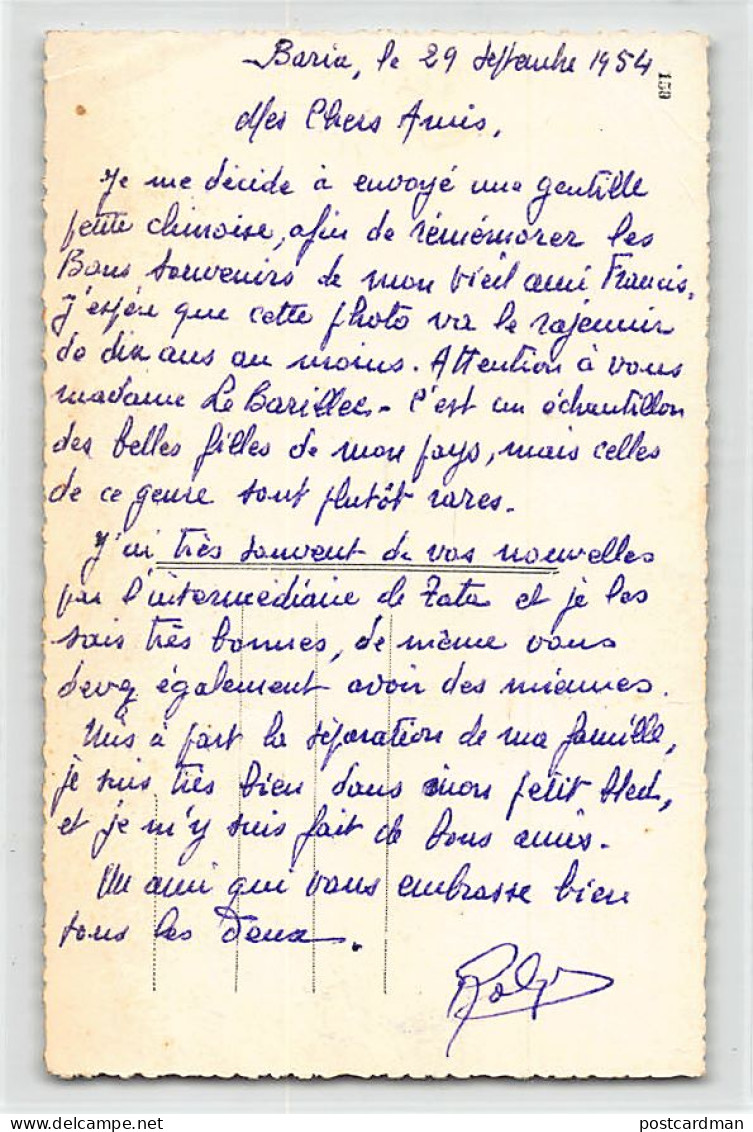 Baria, le 29 Septembre 1954
130
Mes Chers Amis,
Je me décide à envoyé une gentille
petite chinoise, afin de rémémorer les
Bons souvenirs de mon vieil ami Francis,
j'espère que cette photo va le rajeunir
de dix ans au moins. Attention à vous
madame Le Barillec - C'est un échantillon
des belles filles de mon pays, mais celles
de ce genre sont plutôt rares.
J'ai très souvent de vos nouvelles
par l'intermédiaire de Tata et je les
sais très bonnes, de même vous
devez également avoir des miennes.
Mis à part la séparation de ma famille,
je suis très bien dans mon petit bled,
et je m'y suis fait de bons amis.
Un ami qui vous embrasse bien
tous les deux.
postcardman